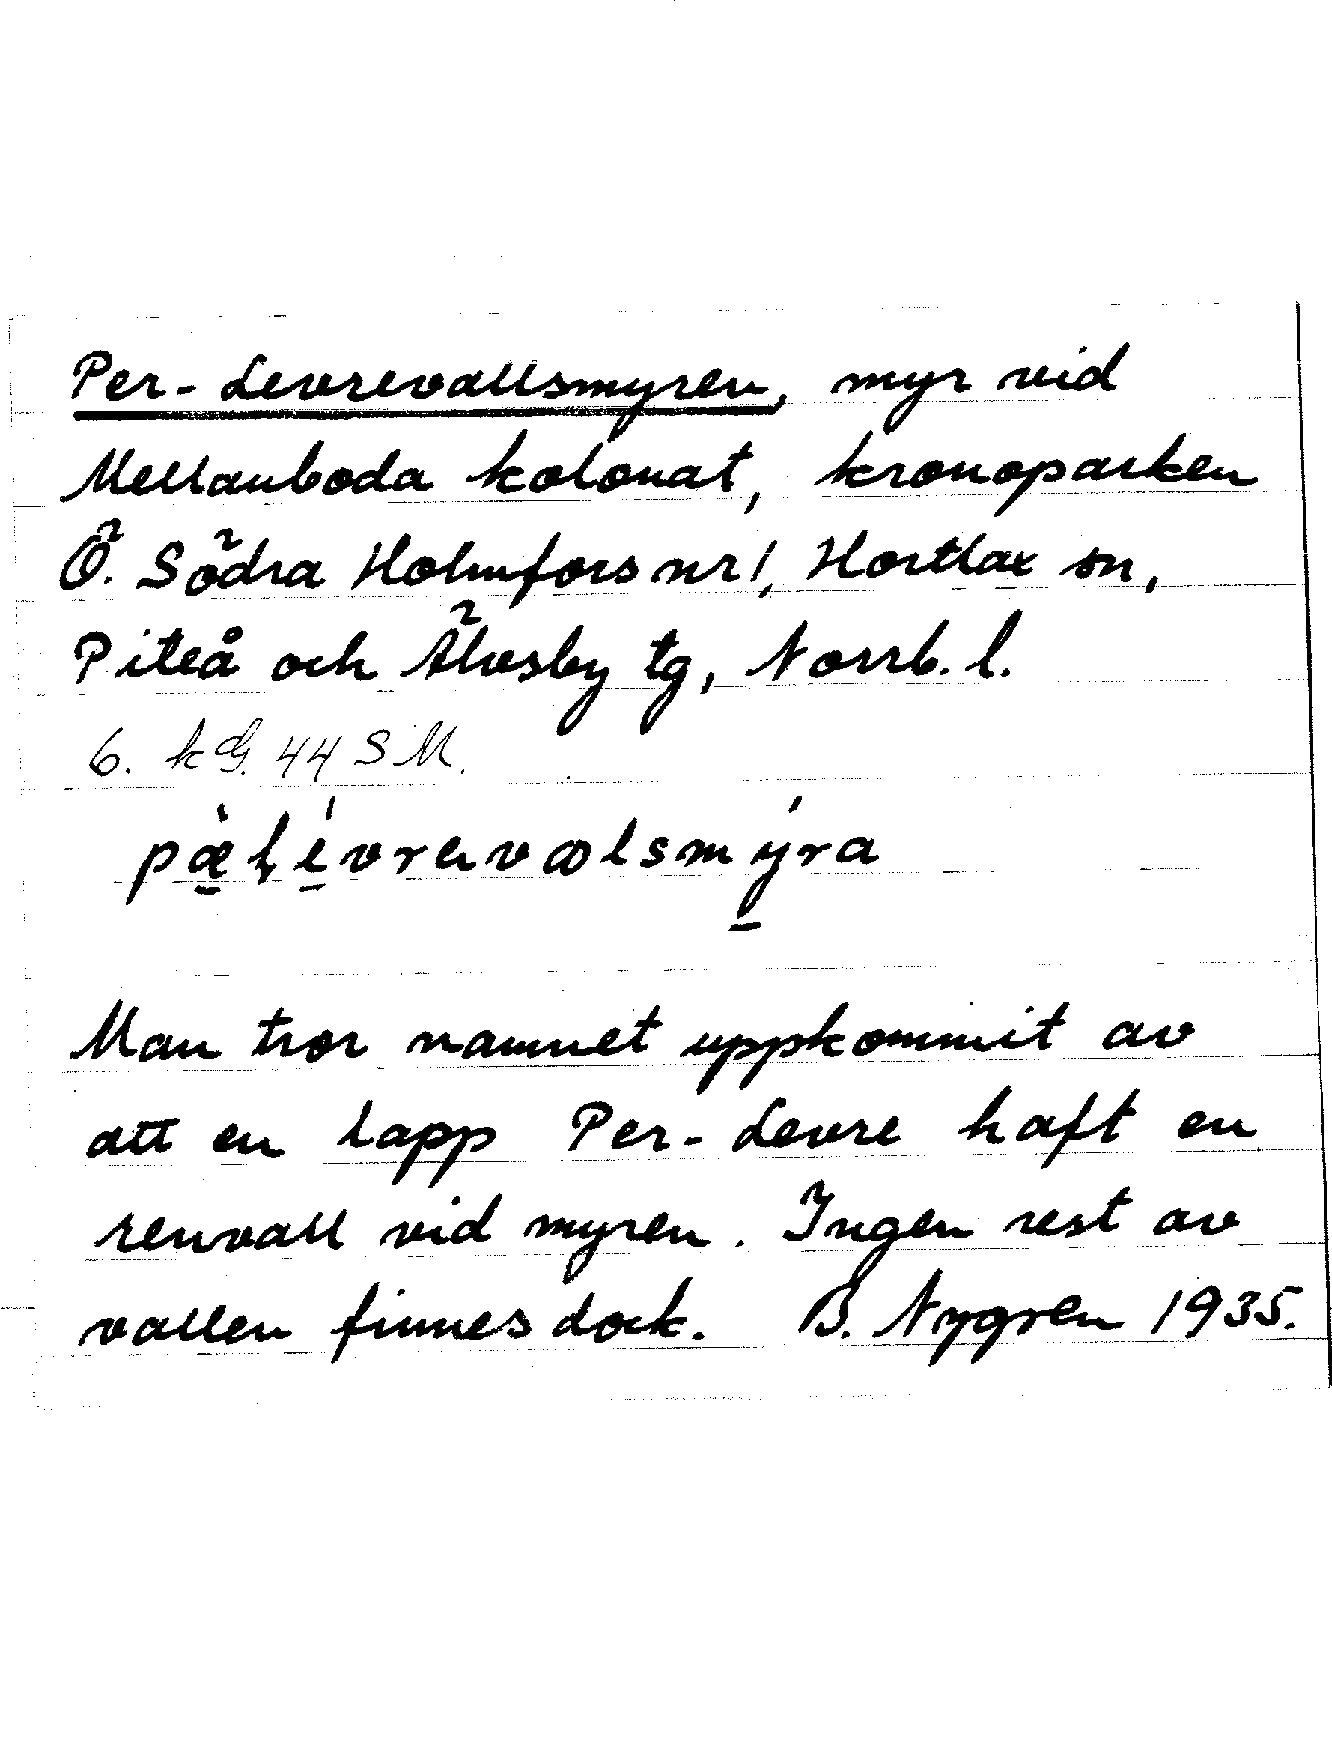 Per-Levrevallsmyren, myr vid
Mellanboda kolonat, kronoparken
Ö. Södra Holmfors nr 1, Hortlax sn,
Piteå och Älvsby tg, Norrb. l.
6. k G. 44 S M.
Man tror namnet uppkommit av
att en lapp Per-Levre haft en
renvall vid myren. Ingen rest av
vallen finnes dock. B. Nygren 1935.